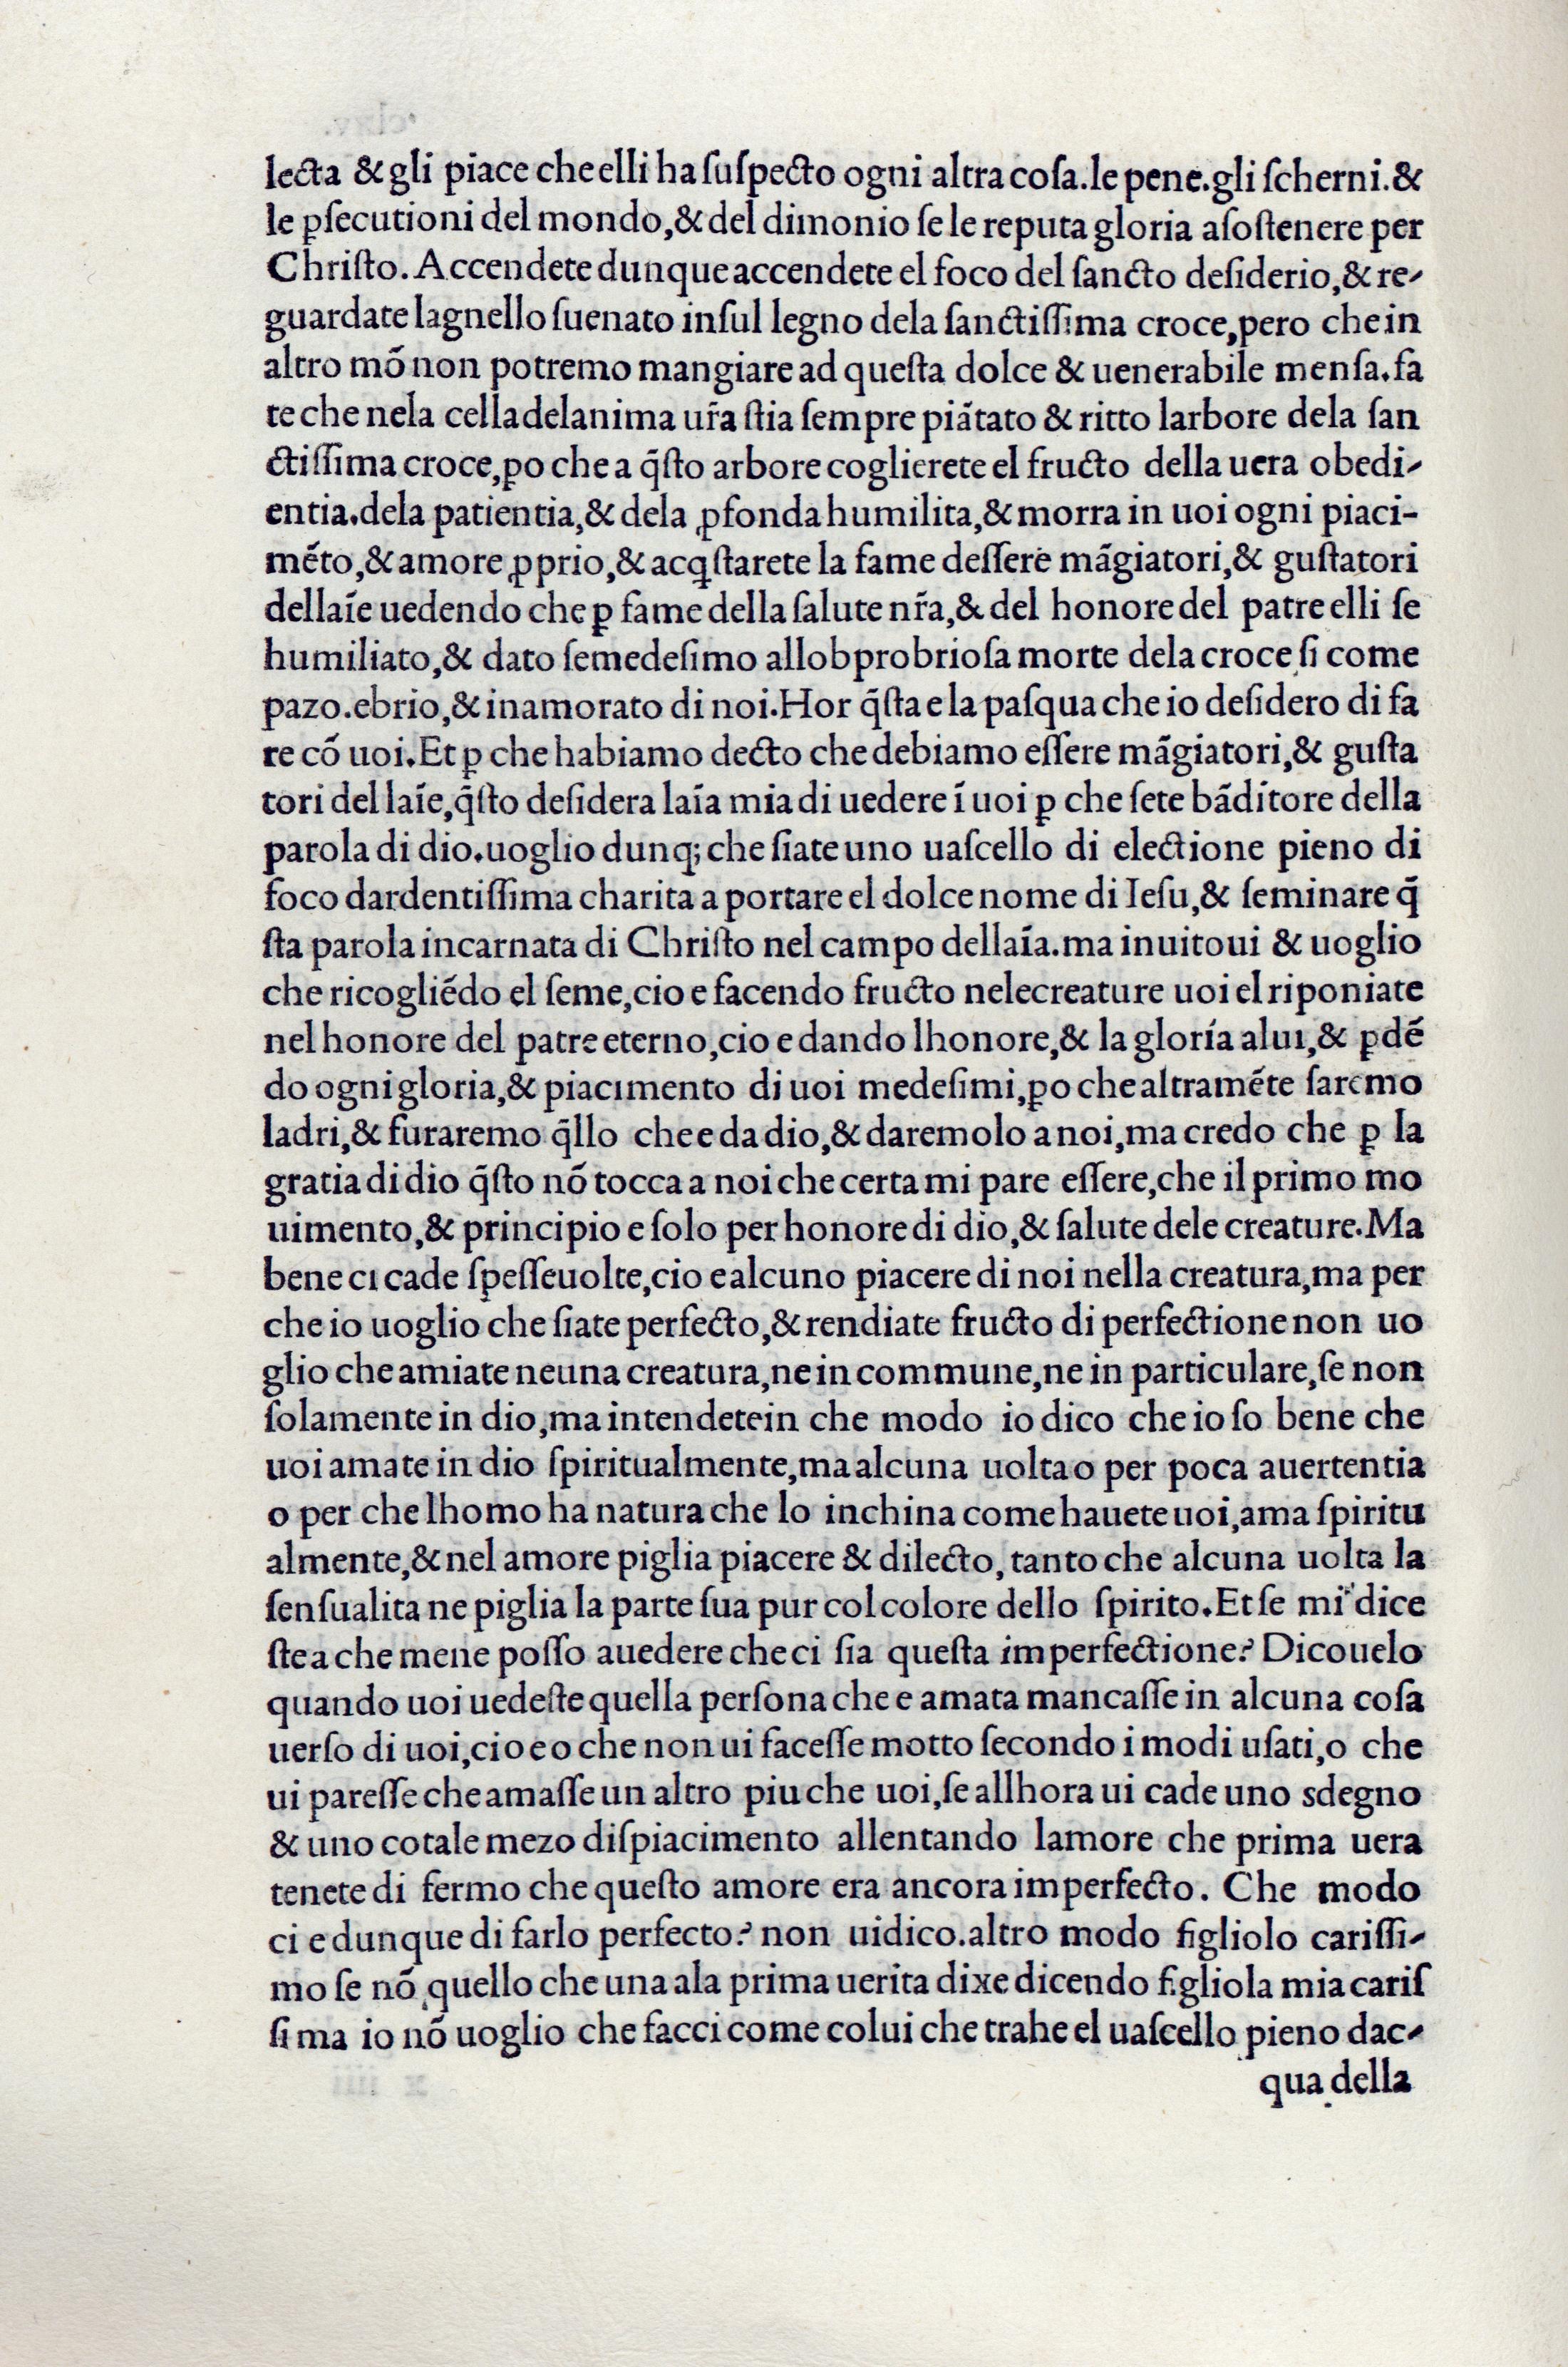 lecta & gli piace che elli ha suſpecto ogni altra coſa.le pene.gli ſcherni.&
le ꝑſecutioni del mondo,& del dimonio ſe le reputa gloria a ſoſtenere per
Chriſto. Accendete dunque accendete el foco del ſancto deſiderio,& re-
guardate lagnello ſuenato inſul legno dela ſanctiſſima croce,pero che in
altro mõ non potremo mangiare ad queſta dolce & uenerabile menſa.fa
te che nela cella delanima ur̃a ſtia ſempre piãtato & ritto larbore dela ſan
ctiſſima croce,ꝑo che a q̃ſto arbore coglierete el fructo della uera obedi-
entia.dela patientia,& dela ꝓfonda humilita,& morra in uoi ogni piaci-
mẽto,& amore ꝓprio,& acqſtarete la fame deſſere mãgiatori,& guſtatori
dellaĩe uedendo che ꝑ fame della ſalute nr̃a,& del honore del patre elli ſe
humiliato,& dato ſemedeſimo allobprobrioſa morte dela croce ſi come
pazo.ebrio,& inamorato di noi.Hor q̃ſta e la paſqua che io deſidero di fa
re cõ uoi.Et ꝑ che habiamo decto che debiamo eſſere mãgiatori,& guſta
tori del laĩe,q̃ſto deſidera laĩa mia di uedere ĩ uoi ꝑ che ſete bãditore della
parola di dio.uoglio dunq; che ſiate uno uaſcello di electione pieno di
foco dardentiſſima charita a portare el dolce nome di Ieſu,& ſeminare q̃
ſta parola incarnata di Chriſto nel campo dellaĩa.ma inuitoui & uoglio
che ricogliẽdo el ſeme,cio e facendo fructo nele creature uoi el riponiate
nel honore del patre eterno,cio e dando lhonore,& la gloria a lui,& ꝑdẽ
do ogni gloria,& piacimento di uoi medeſimi,ꝑo che altramẽte ſaremo
ladri,& furaremo q̃llo che e da dio,& daremolo a noi,ma credo che ꝑ la
gratia di dio q̃ſto nõ tocca a noi che certa mi pare eſſere,che il primo mo
uimento,& principio e ſolo per honore di dio,& ſalute dele creature.Ma
bene ci cade ſpeſſe uolte,cio e alcuno piacere di noi nella creatura,ma per
che io uoglio che ſiate perfecto,& rendiate fructo di perfectione non uo
glio che amiate neuna creatura,ne in commune,ne in particulare,ſe non
ſolamente in dio,ma intendete in che modo io dico che io ſo bene che
uoi amate in dio ſpiritualmente,ma alcuna uolta o per poca auertentia
o per che lhomo ha natura che lo inchina come hauete uoi,ama ſpiritu
almente,& nel amore piglia piacere & dilecto, tanto che alcuna uolta la
ſenſualita ne piglia la parte ſua pur col colore dello ſpirito.Et ſe mi dice
ſte a che mene poſſo auedere che ci ſia queſta imperfectione? Dicouelo
quando uoi uedeſte quella perſona che e amata mancaſſe in alcuna coſa
uerſo di uoi,cio e o che non ui faceſſe motto ſecondo i modi uſati,o che
ui pareſſe che amaſſe un altro piu che uoi,ſe allhora ui cade uno sdegno
& uno cotale mezo diſpiacimento allentando lamore che prima uera
tenete di fermo che queſto amore era ancora imperfecto. Che modo
ci e dunque di farlo perfecto? non uidico.altro modo figliolo cariſſi-
mo ſe nõ quello che una ala prima uerita dixe dicendo figliola mia cariſ
ſima io nõ uoglio che facci come colui che trahe el uaſcello pieno dac-
qua della